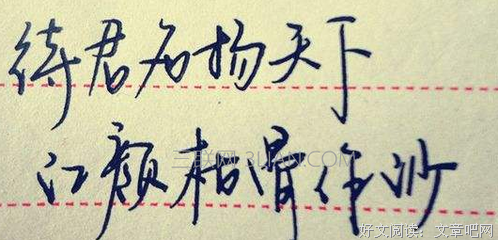 待君名扬天下
三联网 3LIAN.COM
江颜枯骨作沙
好文阅读：文章吧网